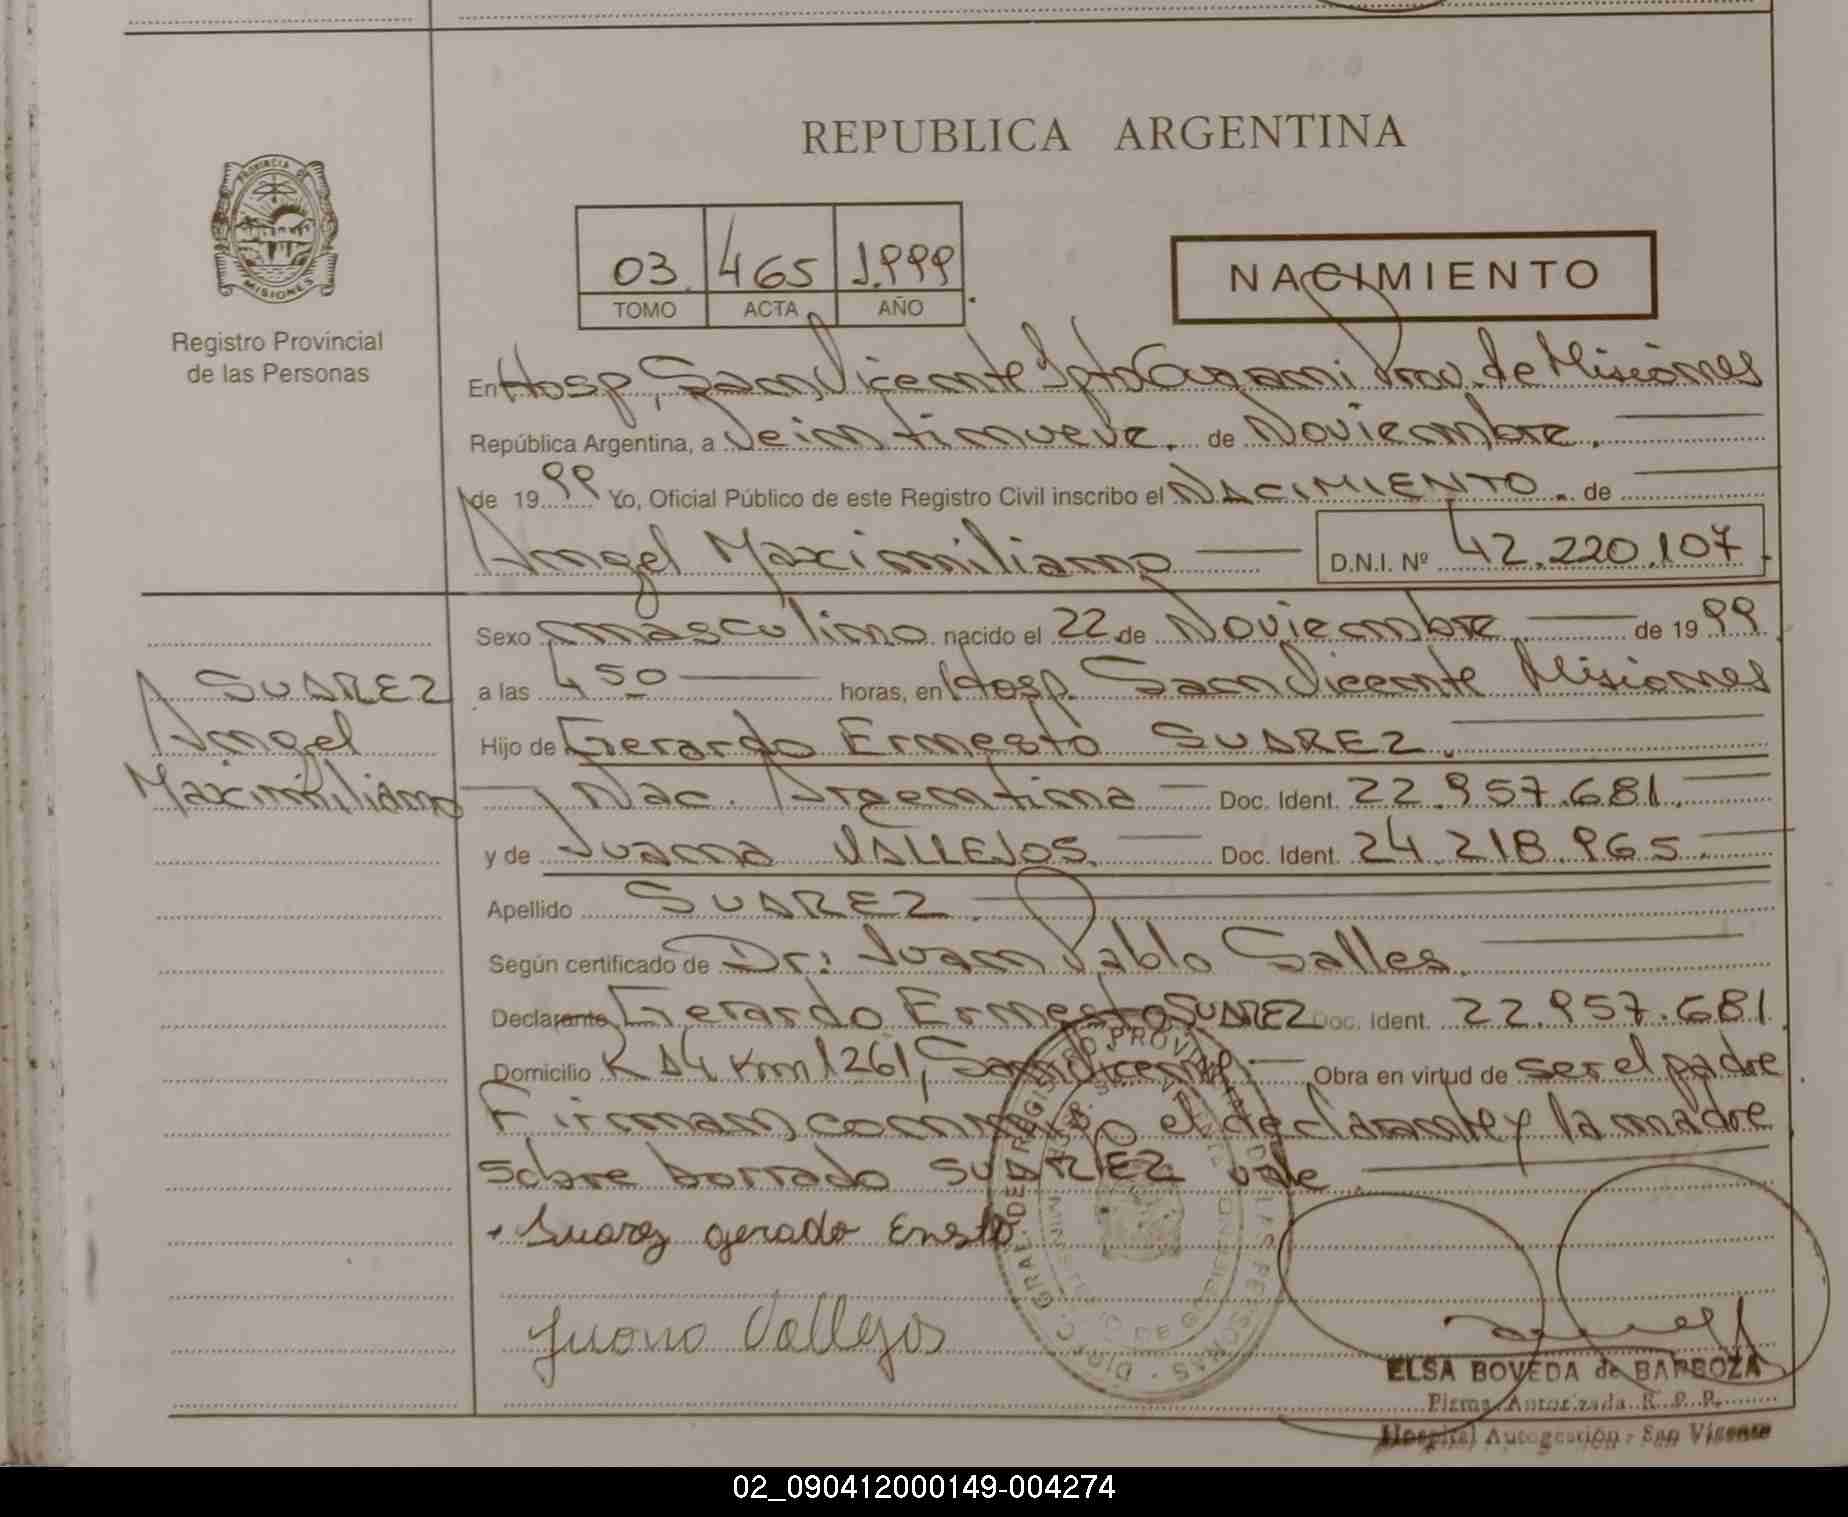 REPUBLICA ARGENTINA
PROVINCIA DE MISIONES
Registro Provincial
de las Personas
03. 465 1.999
TOMO ACTA AÑO
NACIMIENTO
En Hosp, San Vicente Dpto Guarani Prov. de Misiones
República Argentina, a Veintinueve. de Noviembre.
de 1999 Yo, Oficial Público de este Registro Civil inscribo el NACIMIENTO. de
Angel Maximiliano D.N.I. Nº 42.220.107
Sexo masculino nacido el 22 de Noviembre de 1999
a las 4 50 horas, en Hosp. San Vicente Misiones
SUAREZ
Angel
Maximiliano
Hijo de Gerardo Ernesto SUAREZ.
Nac. Argentina Doc. Ident. 22.957.681.
y de Juana VALLEJOS. Doc. Ident. 24.218.965.
Apellido SUAREZ.
Según certificado de Dr: Juan Pablo Salles.
Declarante Gerardo Ernesto SUAREZ Doc. Ident. 22.957.681.
Domicilio R 14 Km 1261, San Vicente Obra en virtud de ser el padre
Firman conmigo el declarante y la madre
sobre borrado SUAREZ vale.
Suarez gerado Ensto
Juana Vallejos
ELSA BOVEDA de BARBOZA
Firma Autorizada R. P. P.
Hospital Autogestión - San Vicente
02_090412000149-004274